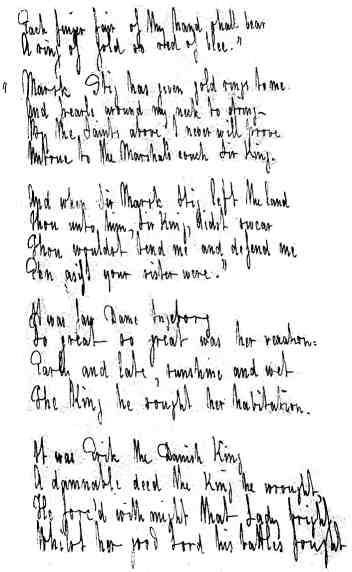 Each finger fair of thy hand shall bear
A ring of gold so red of blee."
"Marsk Stig has given gold rings to me
And pearls around my neck to string
By the Saints above, I never will prove
Untrue to the Marshal's couch Sir King.
And when Sir Marsk Stig left the land
Thou unto him, Sir King, didst swear
Thou wouldst tend me and defend me
Een as if your sister were."
It was fair Dame Ingeborg
So great so great was her vexation:
Early and late, sunshine and wet
The King he sought her habitation.
It was Erik the Danish King
A damnable deed the King he wrought,
He forc'd with might that Lady bright,
Whilst her good Lord his battles fought